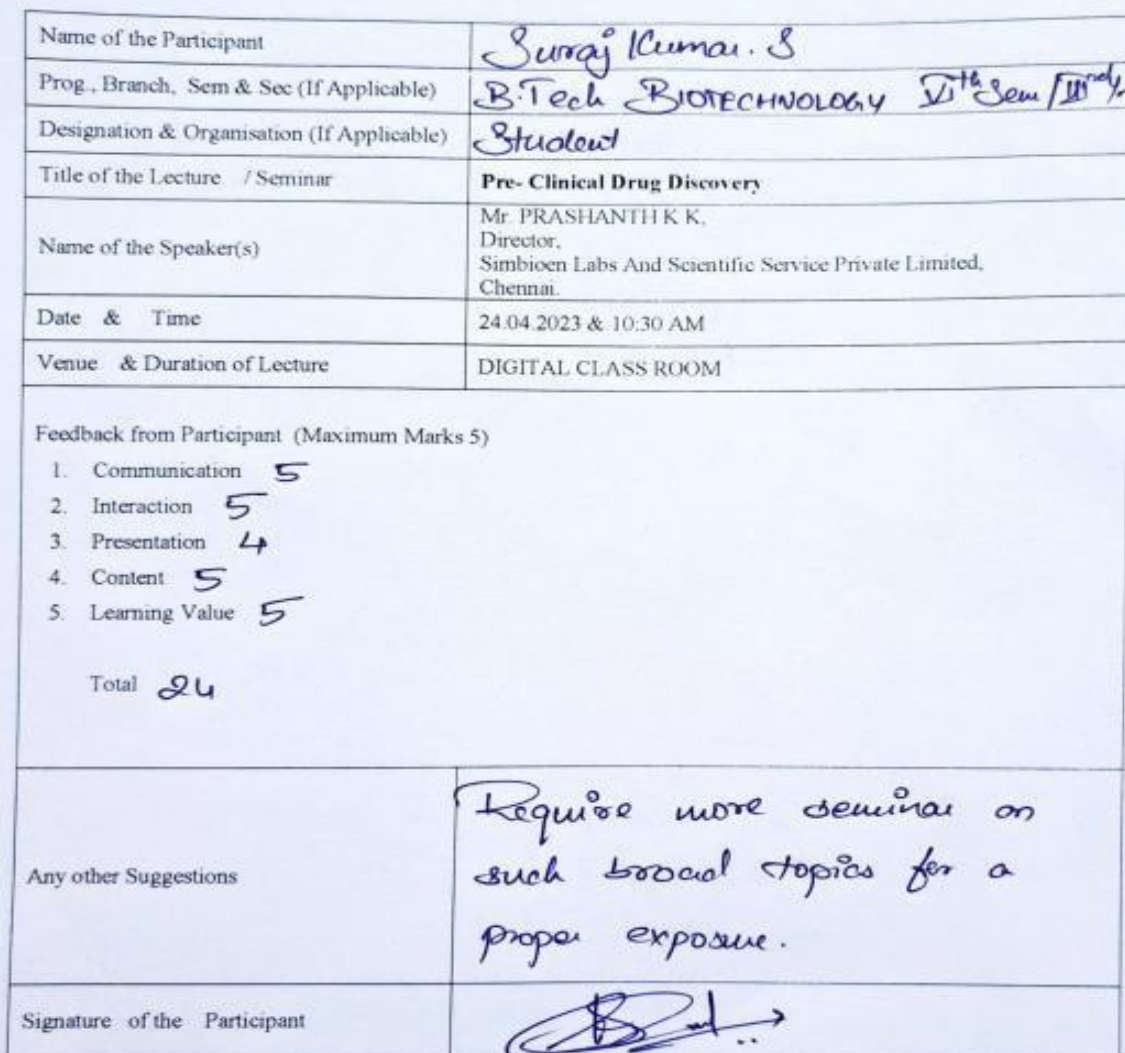 Name of the Participant Suraj Kumar. S
Prog., Branch, Sem & Sec (If Applicable) B.Tech BIOTECHNOLOGY VIth Sem / IIIrd
Designation & Organisation (If Applicable) Student
Title of the Lecture / Seminar Pre- Clinical Drug Discovery
Name of the Speaker(s)
Mr. PRASHANTH K K,
Director,
Simbioen Labs And Scientific Service Private Limited,
Chennai.
Date & Time 24.04.2023 & 10:30 AM
Venue & Duration of Lecture DIGITAL CLASS ROOM
Feedback from Participant (Maximum Marks 5)
1. Communication 5
2. Interaction 5
3. Presentation 4
4. Content 5
5. Learning Value 5
Total 24
Any other Suggestions
Require more seminar on
such broad topics for a
proper exposure.
Signature of the Participant